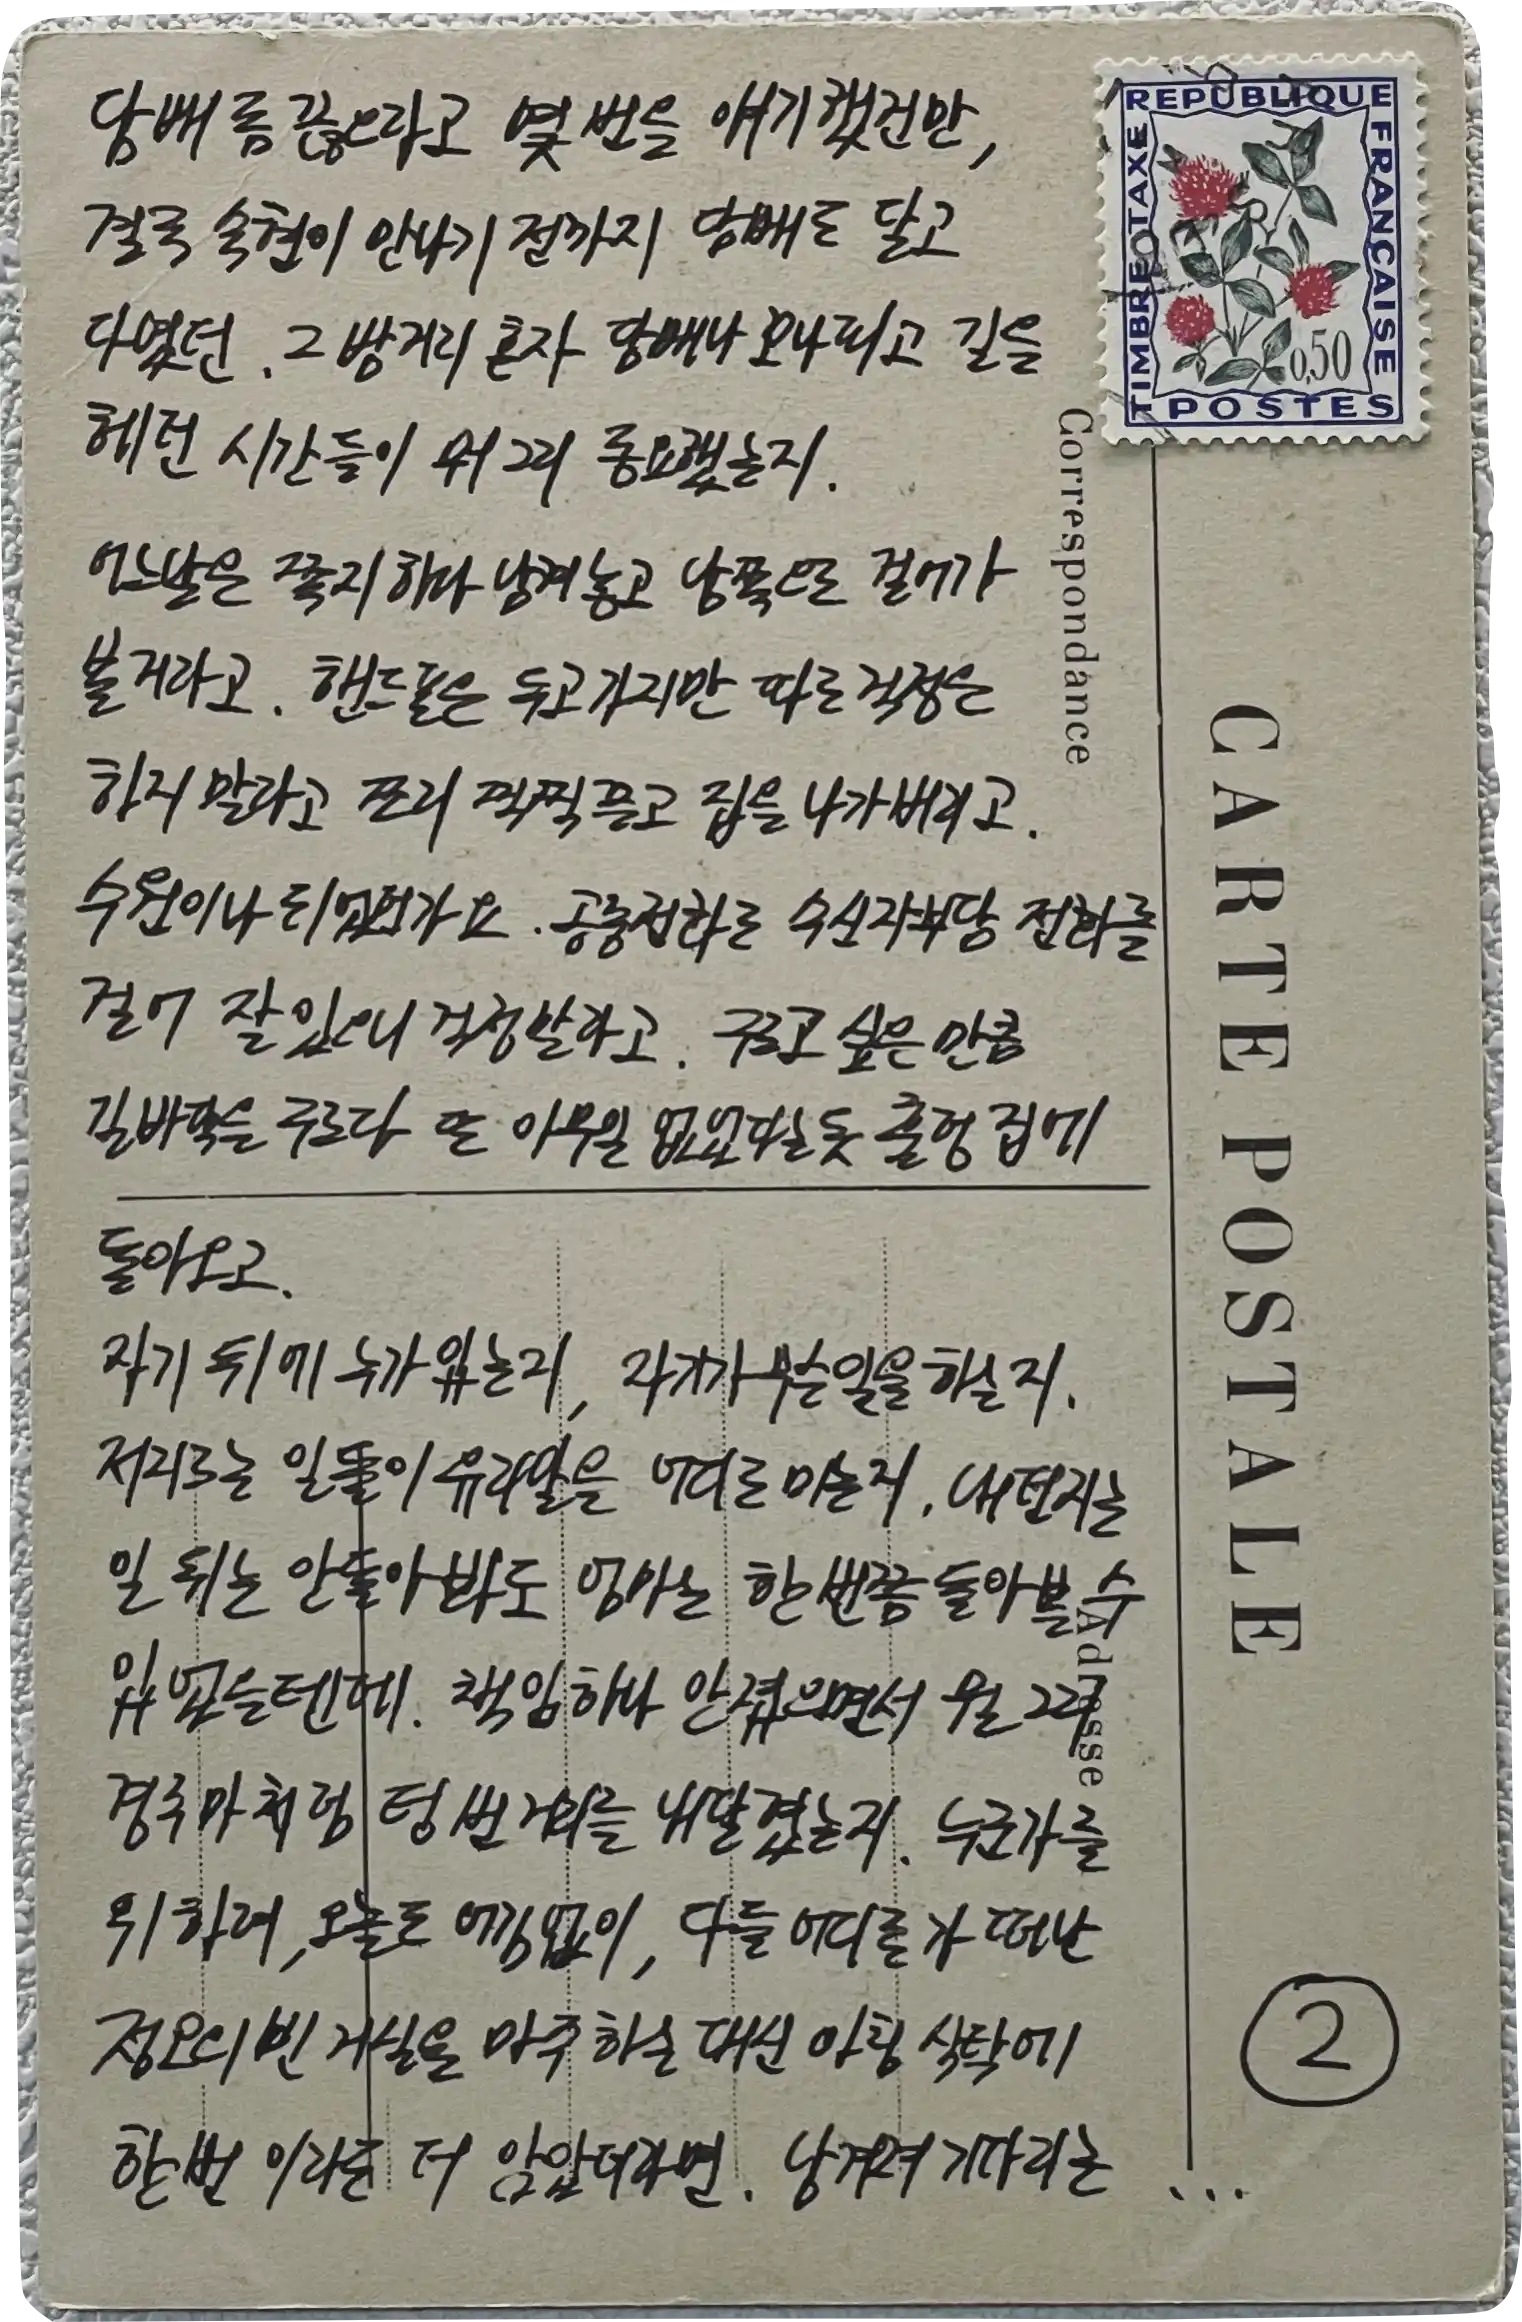 담배 좀 끊으라고 몇 번을 얘기했건만,
결국 숙현이 만나기 전까지 담배도 달고
다녔던. 그 밤거리 혼자 담배나 꼬나피고 길을
헤던 시간들이 뭐 그리 중요했는지.
어느날은 쪽지 하나 남겨놓고 남쪽으로 걸어가
볼거라고. 핸드폰은 두고가지만 따로 걱정은
하지 말라고 쪼리 찍찍 끌고 집을 나가버리고.
수원이나 되었던가요. 공중전화로 수신자부담 전화를
걸어 잘 있으니 걱정말라고. 구르고 싶은 만큼
길바닥을 구르다 또 아무일 없었다는 듯 훌렁 집에
돌아오고.
자기 뒤에 누가 있는지, 자기가 무슨 일을 하는지.
저지르는 일들이 유라말을 어디로 미는지. 내던지는
일 뒤는 안 돌아봐도 엄마는 한 번쯤 돌아볼 수
있었을텐데. 책임 하나 안 졌으면서 뭘 그리
경주마처럼 텅 빈 거리를 내달렸는지. 누군가를
위하려, 오늘도 어김없이, 다들 어디론가 떠난
정오의 빈 거실을 마주하는 대신 아침 식탁에
한 번 이라도 더 앉았더라면. 남겨져 기다리는 ...
②
REPUBLIQUE FRANCAISE
TIMBRE TAXE
0,50
POSTES
Correspondance
CARTE POSTALE
Adresse